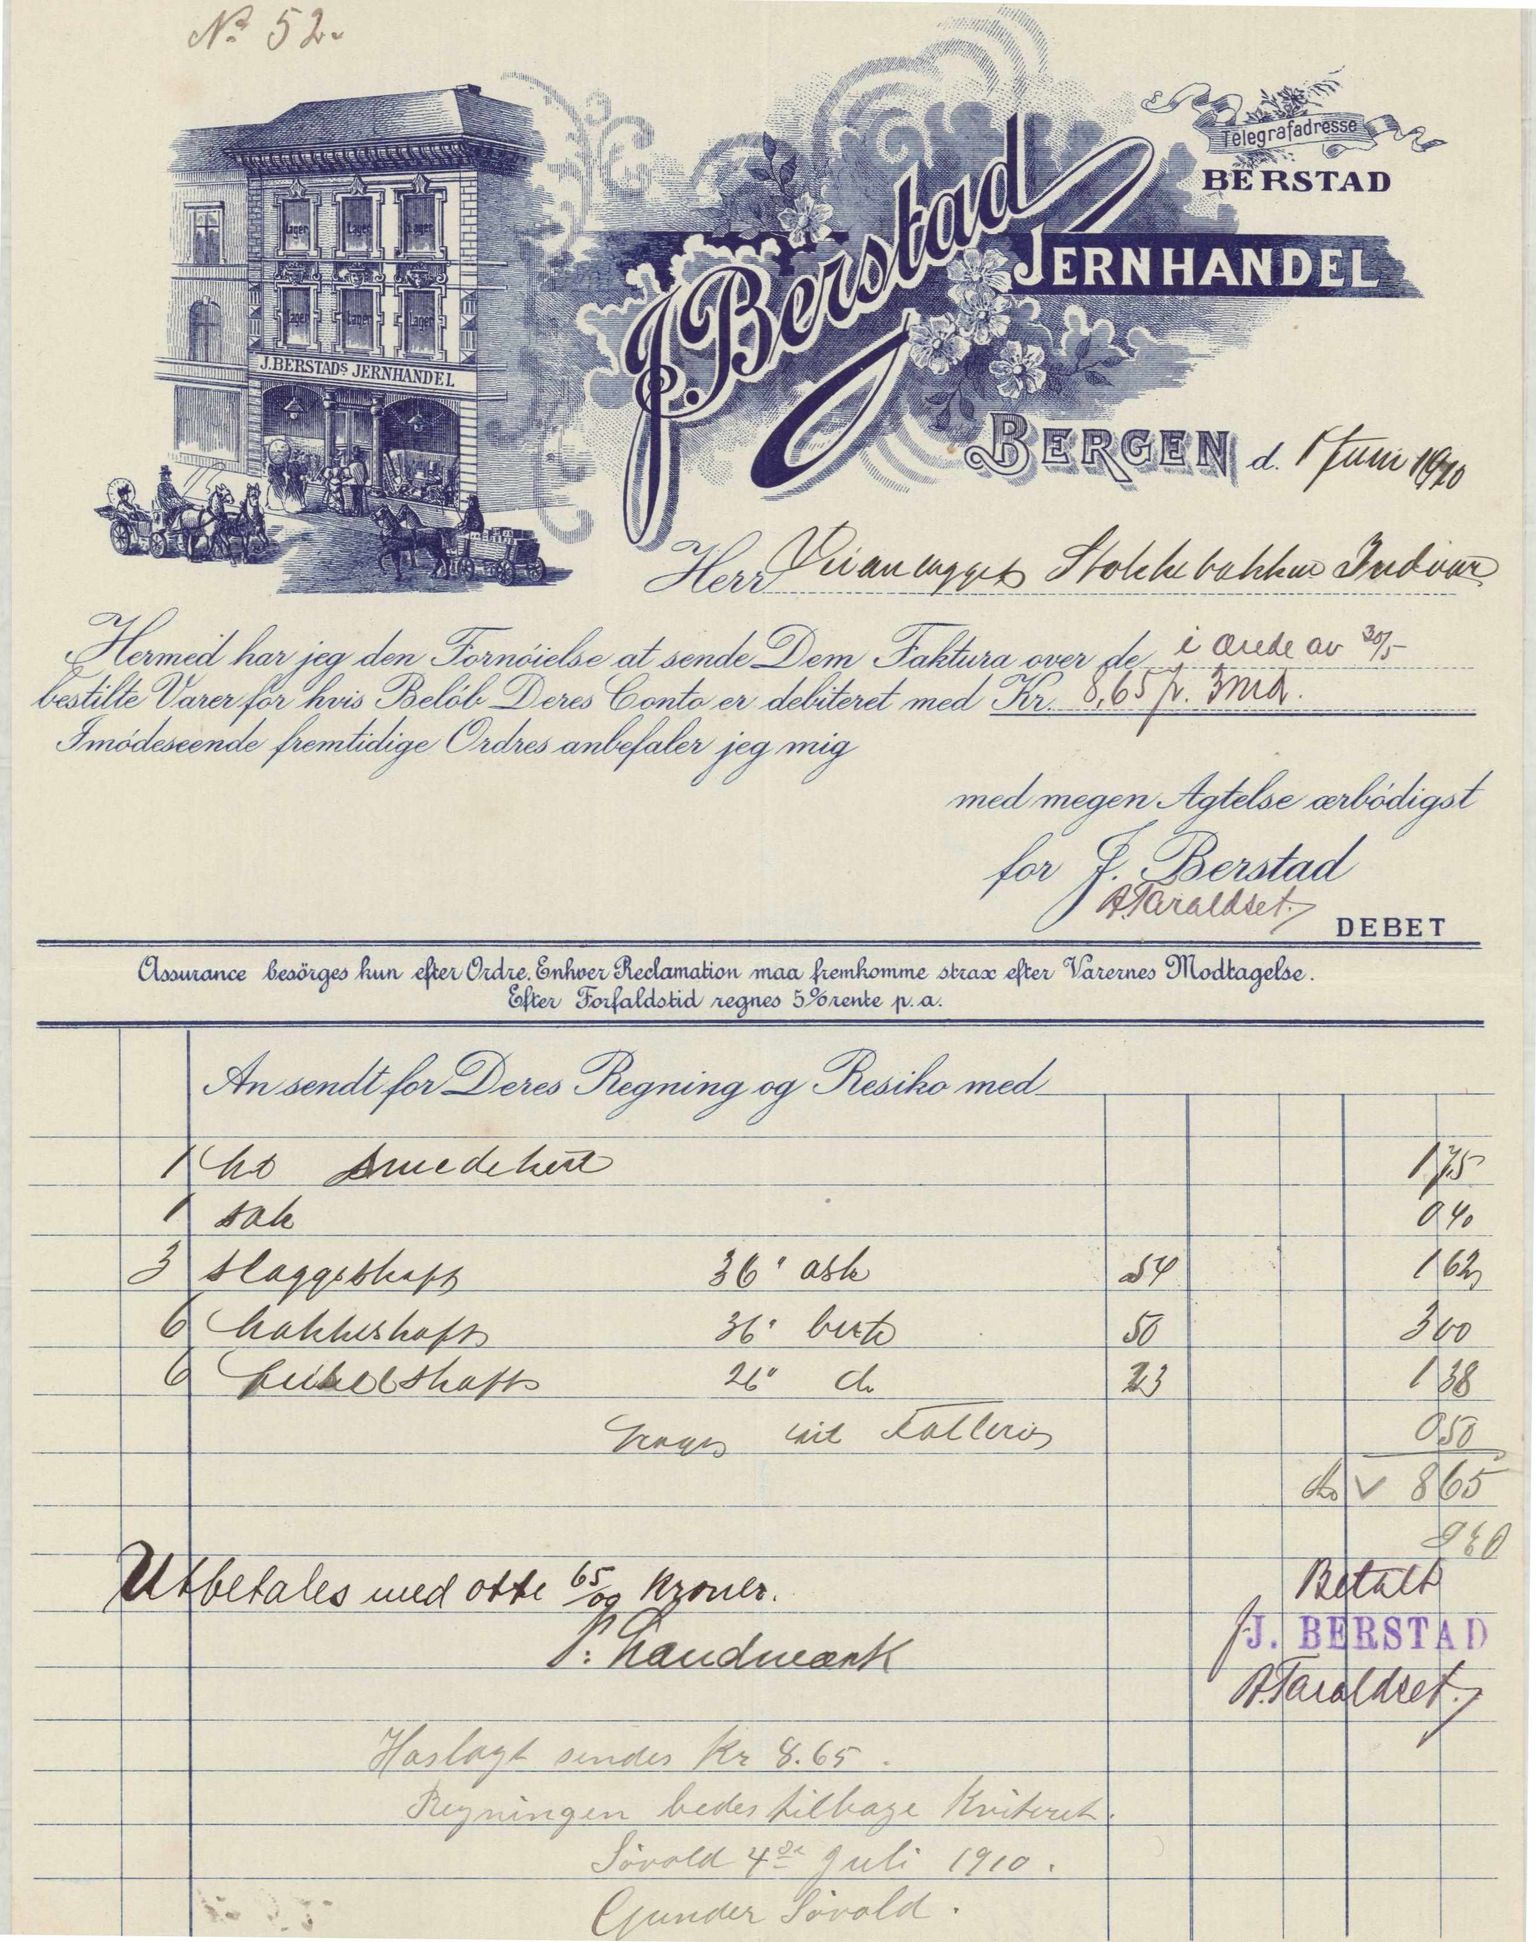 No 52.
Telegrafadresse
BERSTAD
J. Berstad
JERNHANDEL
Lager Lager Lager
Lager Lager Lager
J. BERSTADS JERNHANDEL
BERGEN d. 1 Juni 1910
Herr Veianlægget Stokkebakken Indvær
Hermed har jeg den Fornöielse at sende Dem Faktura over de i ordre av 30/5
bestilte Varer for hvis Belöb Deres Conto er debiteret med Kr. 8,65 pr. 3 md.
Imödeseende fremtidige Ordres anbefaler jeg mig
med megen Agtelse ærbödigst
for J. Berstad
A. Taraldset.
DEBET
Assurance besörges kun efter Ordre. Enhver Reclamation maa fremkomme strax efter Varernes Modtagelse.
Efter Forfaldstid regnes 5% rente p. a.
An sendt for Deres Regning og Resiko med
1 smedekul 1 75
1 sæk 0 40
3 slæggeskaft 36" ask 54 1 62
6 hakkeskaft 36" birk 50 3 00
6 feiselskaft 26" do 23 1 38
0 50
Kr 8 65
Utbetales med otte 65/og kroner.
P. Landmark
Betalt
J. BERSTAD
A. Taraldset.
Haslagt sendes Kr 8.65.
Regningen bedes tilbage kviteret.
Sövold 4de Juli 1910.
Gunder Sövold.